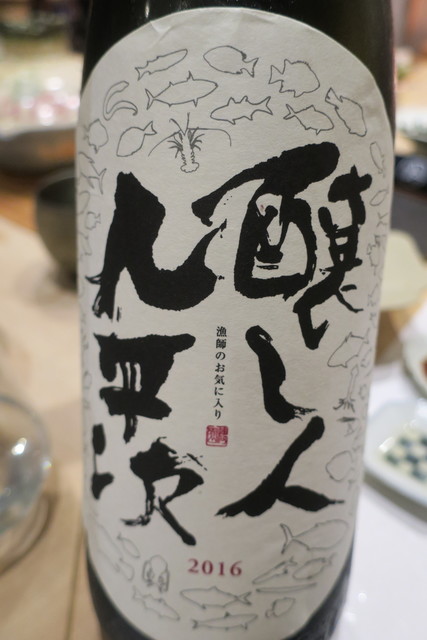 醸し人
九平次
漁師のお気に入り
2016